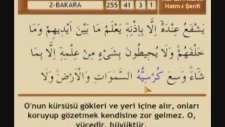 2-BAKARA 255 41 3 1 Hatm-i Şerifi
يَشْفَعُ عِنْدَهُٓ اِلَّا بِاِذْنِهِ يَعْلَمُ مَا بَيْنَ اَيْدِيهِمْ وَمَا
خَلْفَهُمْ وَلَا يُحِيطُونَ بِشَيْءٍ مِنْ عِلْمِهِٓ اِلَّا بِمَا
شَٓاءَ وَسِعَ كُرْسِيُّهُ السَّمٰوَاتِ وَالْاَرْضَ وَلَا
O'nun kürsüsü gökleri ve yeri içine alır, onları
koruyup gözetmek kendisine zor gelmez. O,
yücedir, büyüktür.